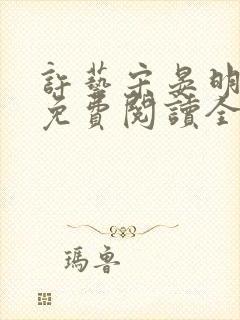 許藝宋晏明
免費閱讀全
瑪魯